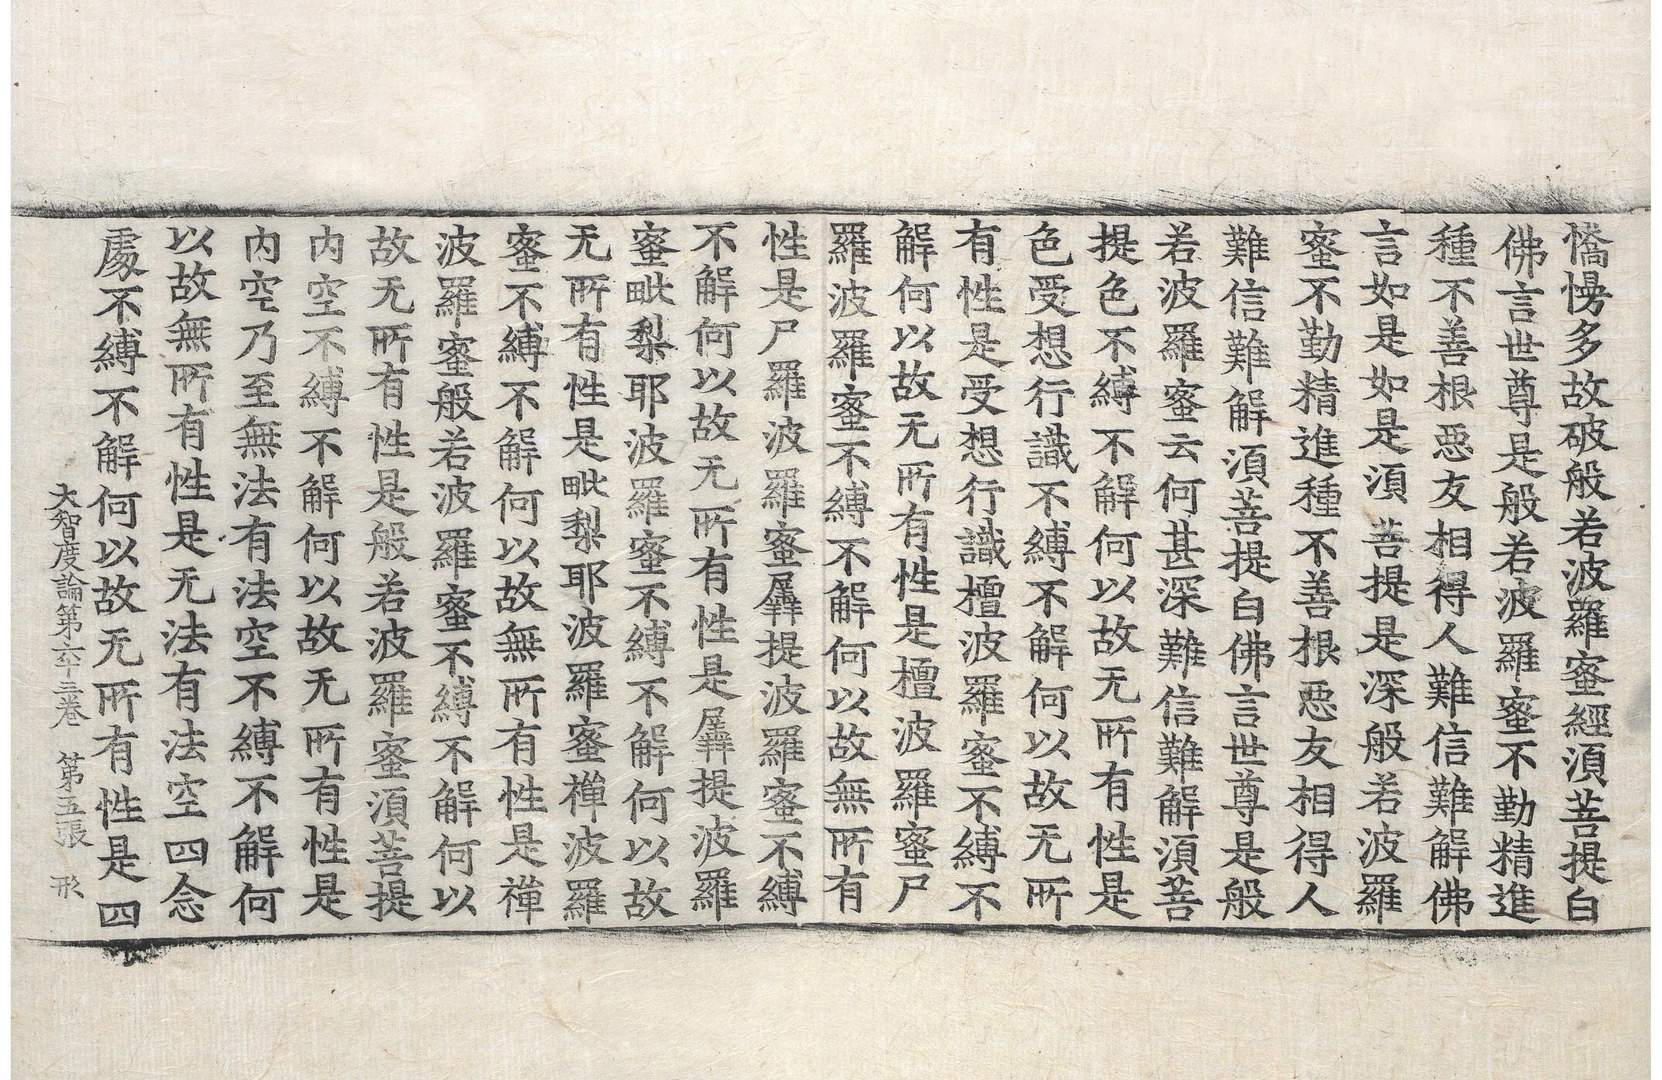 憍慢多故破般若波羅蜜經湏菩提白
佛言世尊是般若波羅蜜不勤精進
種不善根惡友相得人難信難解佛
言如是如是湏菩提是深般若波羅
蜜不勤精進種不善根惡友相得人
難信難解湏菩提白佛言世尊是般
若波羅蜜云何甚深難信難解湏菩
提色不縛不解何以故无所有性是
色受想行識不縛不解何以故无所
有性是受想行識檀波羅蜜不縛不
解何以故无所有性是檀波羅蜜尸
羅波羅蜜不縛不解何以故無所有
性是尸羅波羅蜜羼提波羅蜜不縛
不解何以故无所有性是羼提波羅
蜜毗梨耶波羅蜜不縛不解何以故
无所有性是毗梨耶波羅蜜禪波羅
蜜不縛不解何以故無所有性是禪
波羅蜜般若波羅蜜不縛不解何以
故无所有性是般若波羅蜜湏菩提
内空不縛不解何以故无所有性是
内空乃至無法有法空不縛不解何
以故無所有性是无法有法空四念
處不縛不解何以故无所有性是四
大智度論第六十三卷 第五張 形